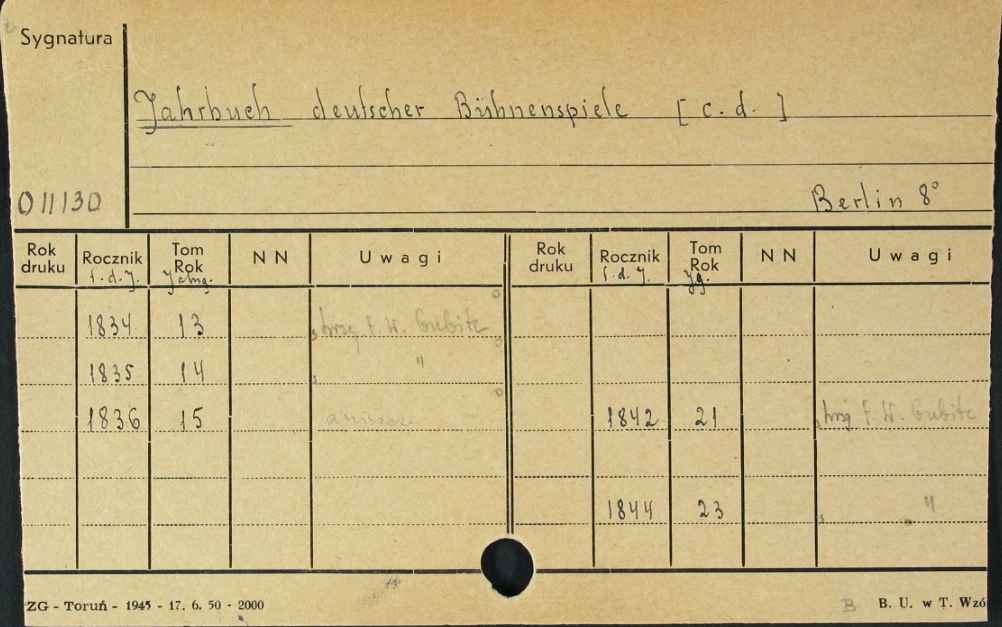 Sygnatura
Jahrbuch deutscher Bühnenspiele [c.d.]
011130
Berlin 8°
Rok druku Rocznik f.d.J. Tom Rok Jahrg. N N Uwagi Rok druku Rocznik f.d.J. Tom Rok Jg. N N Uwagi
1834 13 hrsg F. W. Gubitz
1835 14 "
1836 15 1842 21 hrsg F. W. Gubitz
1844 23 "
ZG - Toruń - 1945 - 17. 6. 50 - 2000 B B. U. w T. Wzó